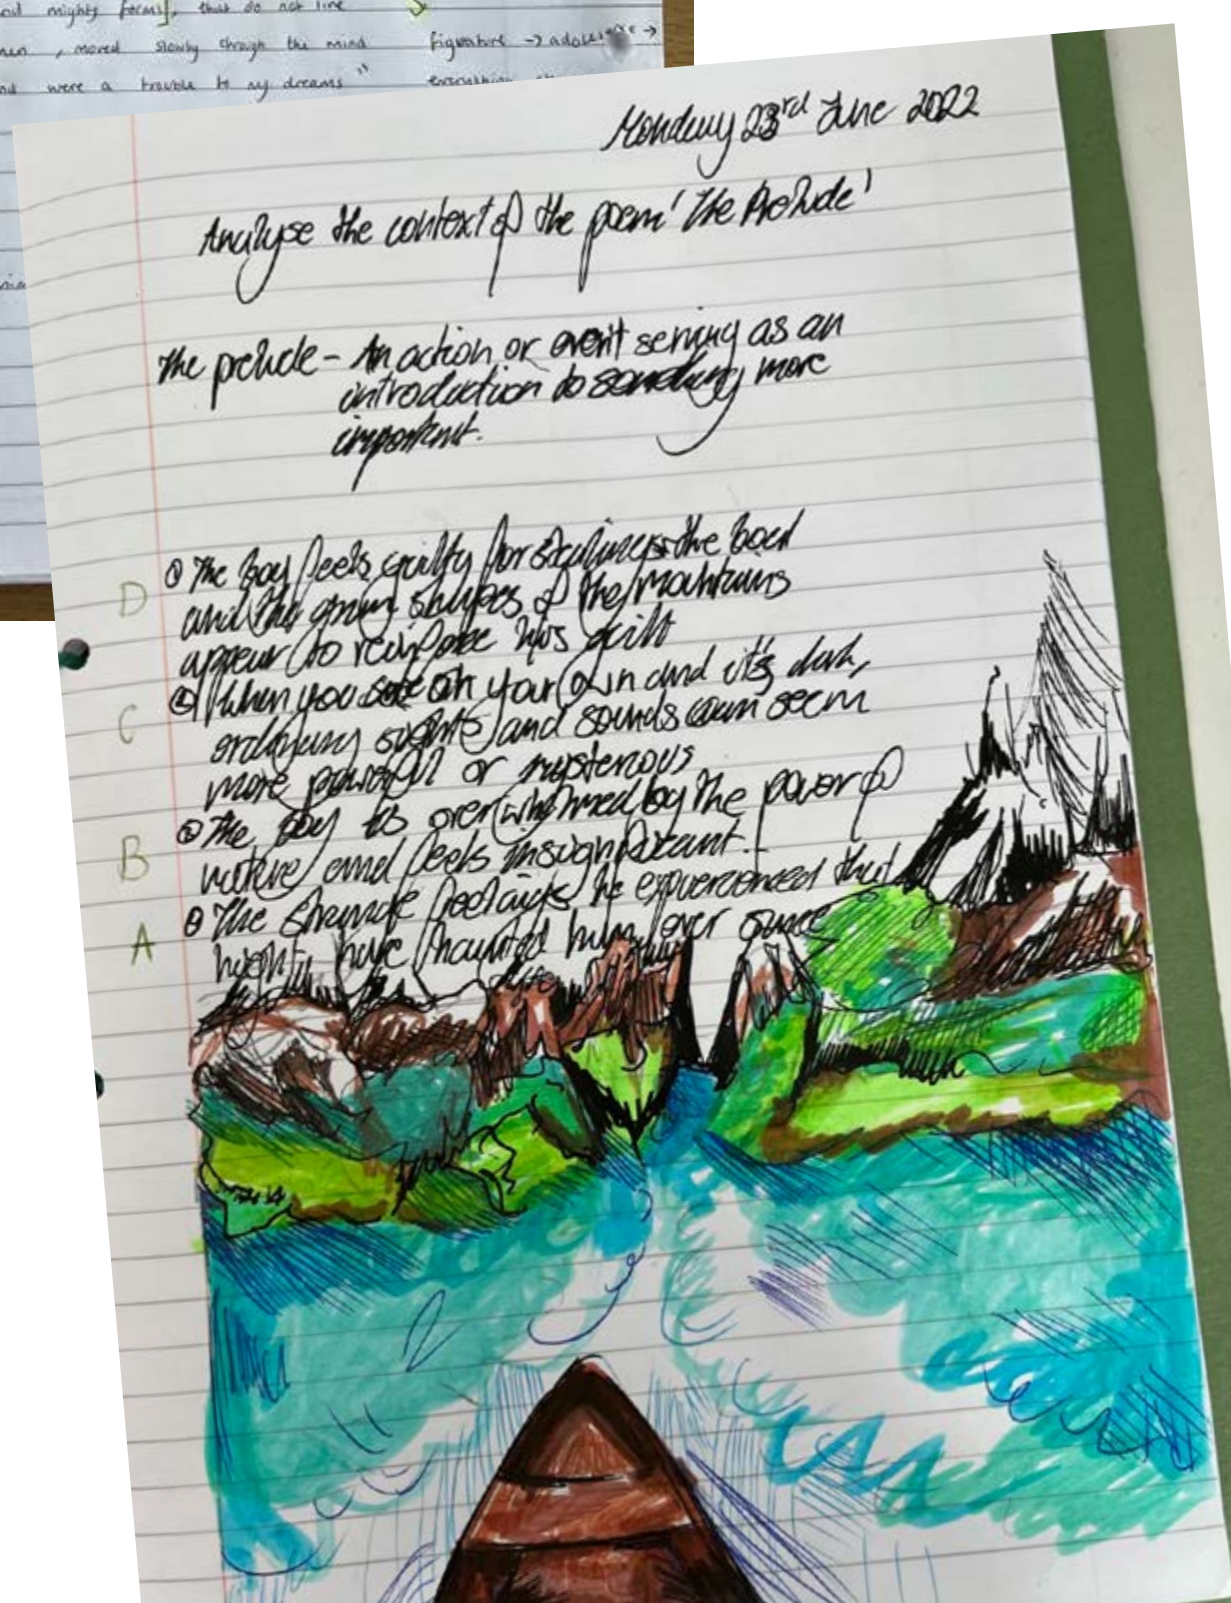 mighty forms], that do not live
, moved slowly through the mind
were a trouble to my dreams"
figurative → adolescence →
Monday 23rd June 2022
Analyse the context of the poem 'The Prelude'
The prelude - An action or event serving as an
introduction to something more
important.
D ① The boy feels guilty for stealing the boat
and the grim shapes of the mountains
appear to reinforce his guilt
C ② When you are on your own and it's dark,
ordinary sights and sounds can seem
more powerful or mysterious
B The boy is overwhelmed by the power of
nature and feels insignificant.
A The strange feelings he experienced that
night have haunted him ever since